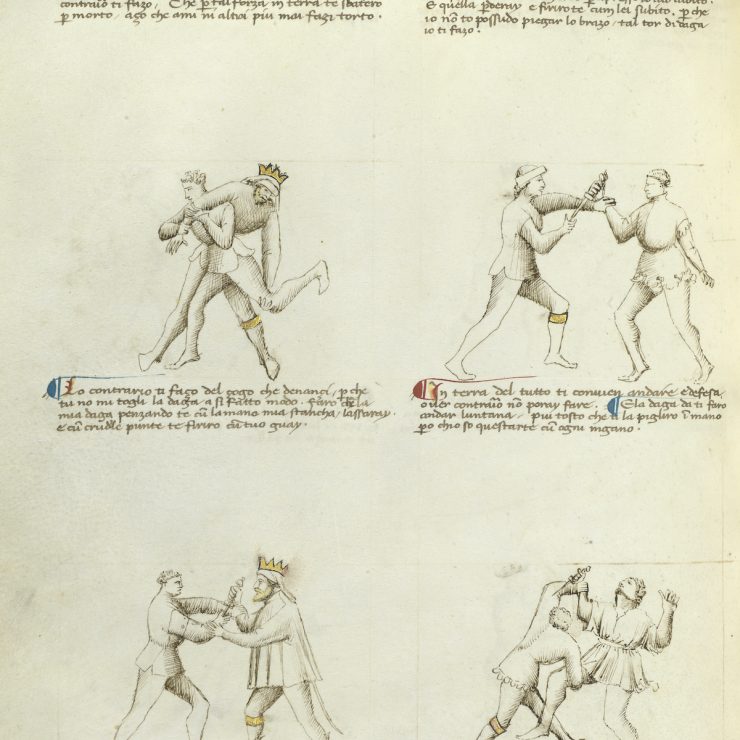 contrario ti fazo, Che p tal forza in terra te sbatero
p morto, aço che ami ni altri piu mai fazi torto.
E quella pderay e firirote cum lei subito. p che
io nō to possudo piegar lo brazo, tal tor di daga
io ti fazo.
Lo contrario ti faço del çogo che denanci, p che
tu no mi togli la daga, a si fatto modo. Faro che la
mia daga penzando te cū la mano mia stancha, lassaray.
e cū crudele punte te firiro cū tuo guay.
In terra del tutto ti convien andare e defesa
o ver contrario nō poray fare. E la daga da ti faro
andar luntana. piu tosto che ti la pigliro in mano
po chio so questarte cū ogni ingano.